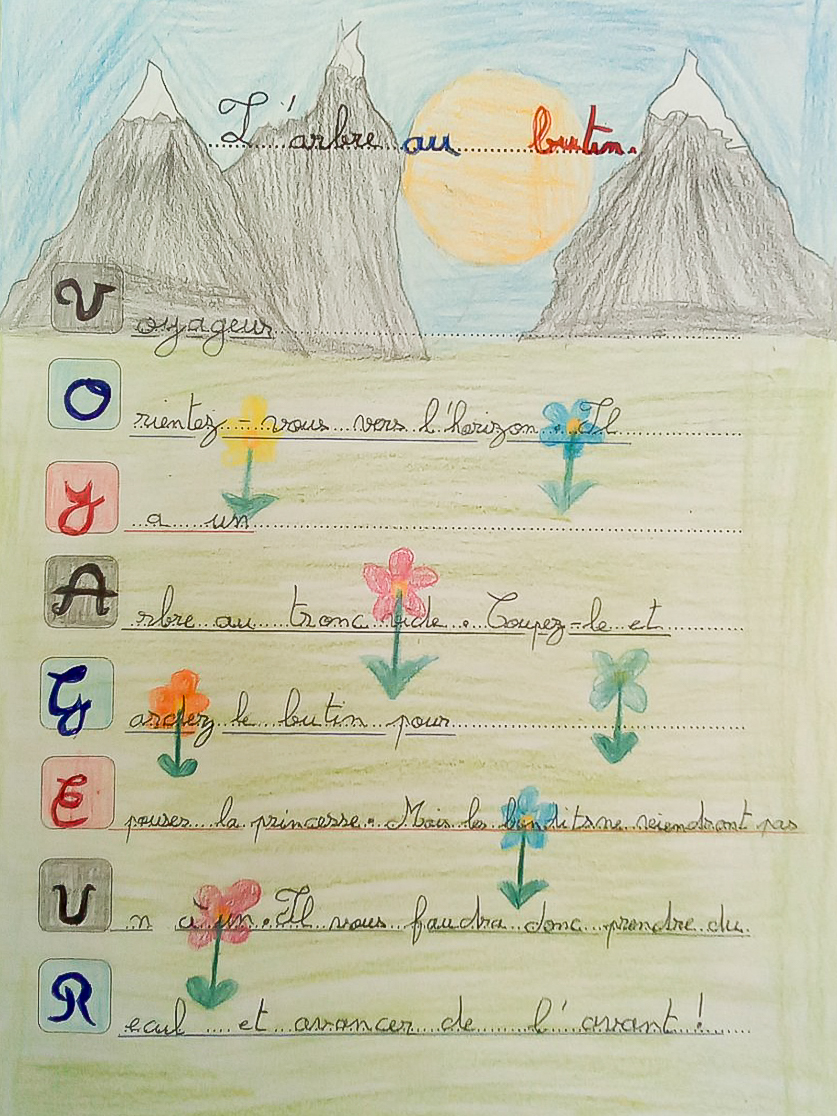 L'arbre au butin.
Voyageur
Orientez-vous vers l'horizon. Il
Y a un
Arbre au tronc vide. Coupez-le et
Gardez le butin pour
Epouser la princesse. Mais les bandits ne viendront pas
Un à un. Il vous faudra donc prendre du
Recul et avancer de l'avant !